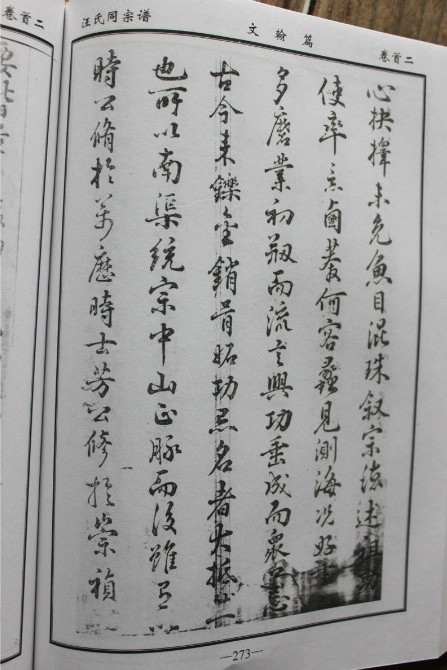 卷首二
汪氏同宗谱
文翰篇
卷首二
心抉擇未免魚目混珠叙宗法述祖
使率意鹵莽何容蠡見測海况好
多磨業初剏而流言興功垂成而衆
古今来鑠金銷骨妬功忌名者大抵
也所以南渠統宗中山正脉而後雖
時公脩於萬歷時士芳公修於崇禎
—273—